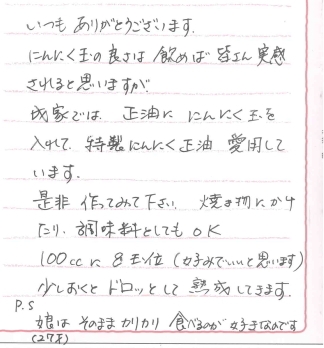 いつも ありがとうございます.
にんにく玉の良さは 飲めば 皆さん 実感
されると思いますが
我家では. 正油に にんにく玉を
入れて. 特製にんにく正油 愛用して
います.
是非 作ってみて下さい 焼き物にかけ
たり. 調味料としても OK
100ccに 8玉位 (好みでいいと思います)
少しおくと ドロッとして 熟成してきます.
P.S
娘は そのまま カリカリ 食べるのが 好きなんです
(27才)